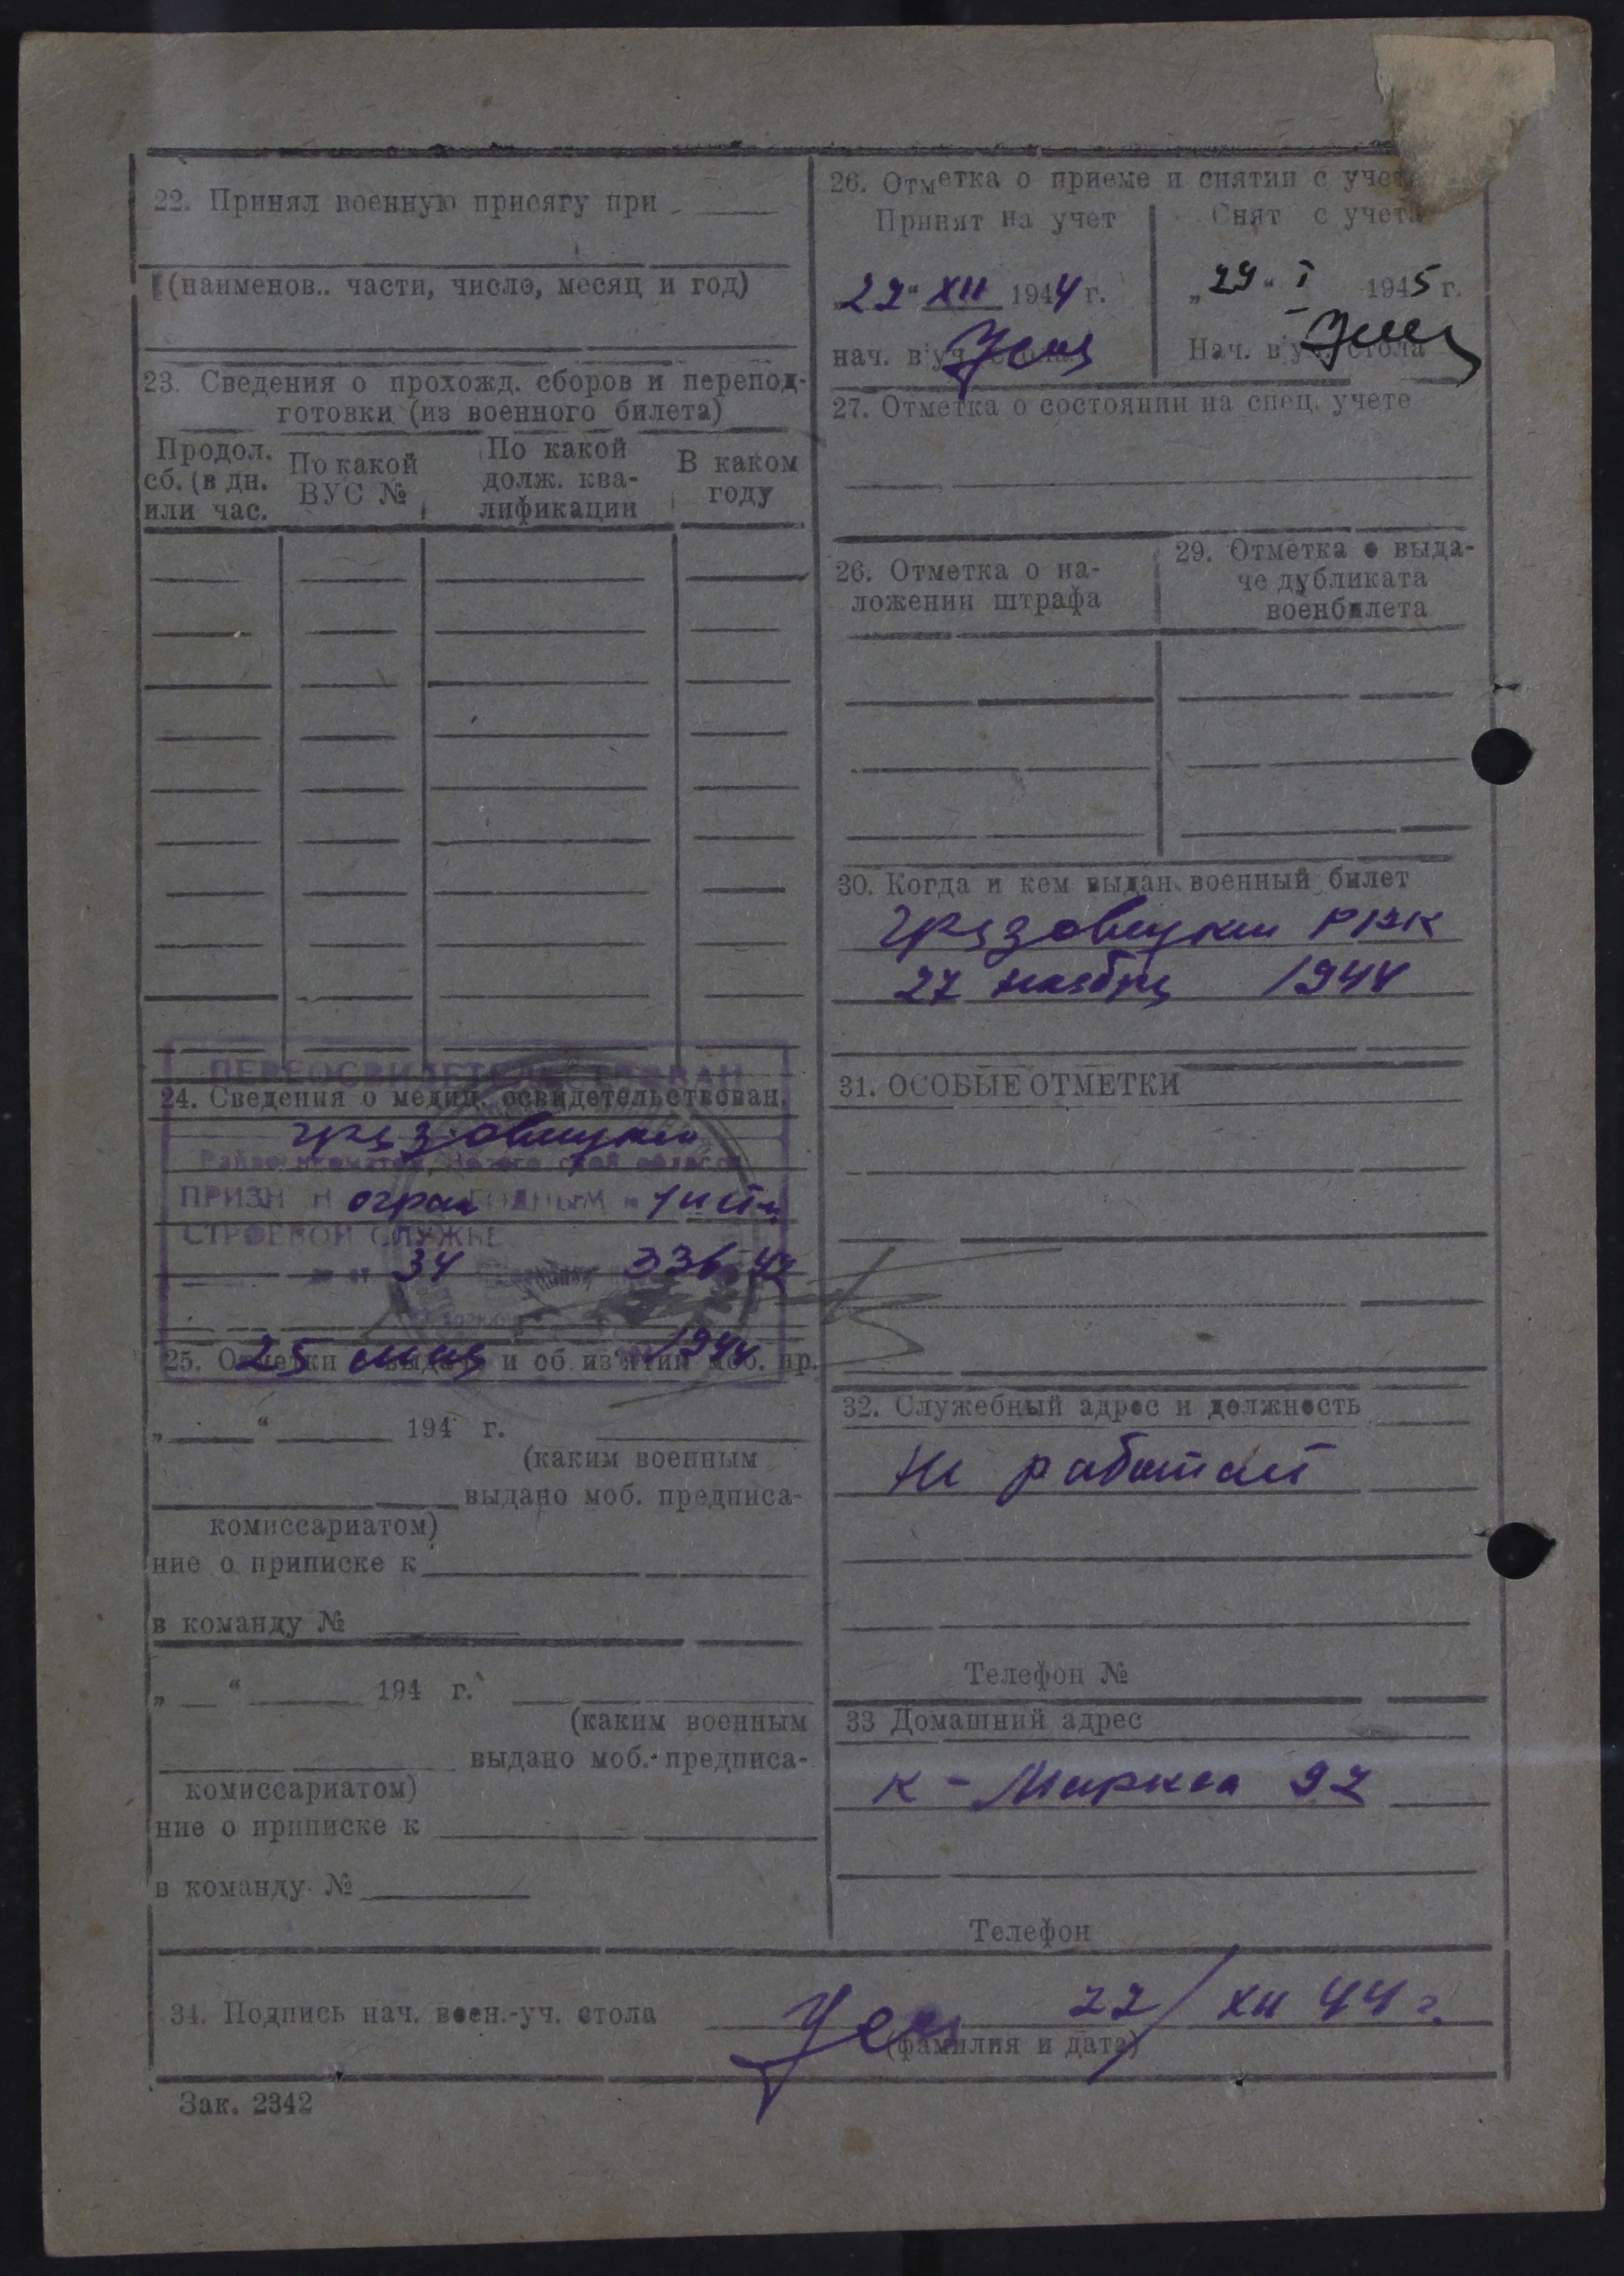 22. Принял военную присягу при
(наименов.. части, число, месяц и год)
23. Сведения о прохожд. сборов и перепод-
готовки (из военного билета)
Продол. сб. (в дн. или час.
По какой ВУС №
По какой долж. ква-лификации
В каком году
ПЕРЕОСВИДЕТЕЛЬСТВОВАН
24. Сведения о медиц. освидетельствован.
Грязовецким
ПРИЗН Н огран ГОДНЫМ
СТРОЕВОЙ СЛУЖБЕ
34 336-42
25. Отметки о выдаче и об из'ятии моб. пр.
25 1944
„ “ 194 г.
(каким военным
выдано моб. предписа-
комиссариатом)
ние о приписке к
в команду №
„ “ 194 г.
(каким военным
выдано моб. предписа-
комиссариатом)
ние о приписке к
в команду №
26. Отметка о приеме и снятии с учета
Принят на учет
Снят с учета
„22“ XII 1944 г.
„29“ I 1945 г.
нач. в/уч. стола
Нач. в/уч. стола
27. Отметка о состоянии на спец. учете
26. Отметка о на-
ложении штрафа
29. Отметка о выда-
че дубликата
военбилета
30. Когда и кем выдан военный билет
Грязовецким РВК
27 ноября 1944
31. ОСОБЫЕ ОТМЕТКИ
32. Служебный адрес и должность
Не работает
Телефон №
33 Домашний адрес
К-Маркса 97
Телефон
34. Подпись нач. воен.-уч. стола 22/XII 44 г.
(фамилия и дата)
Зак. 2342